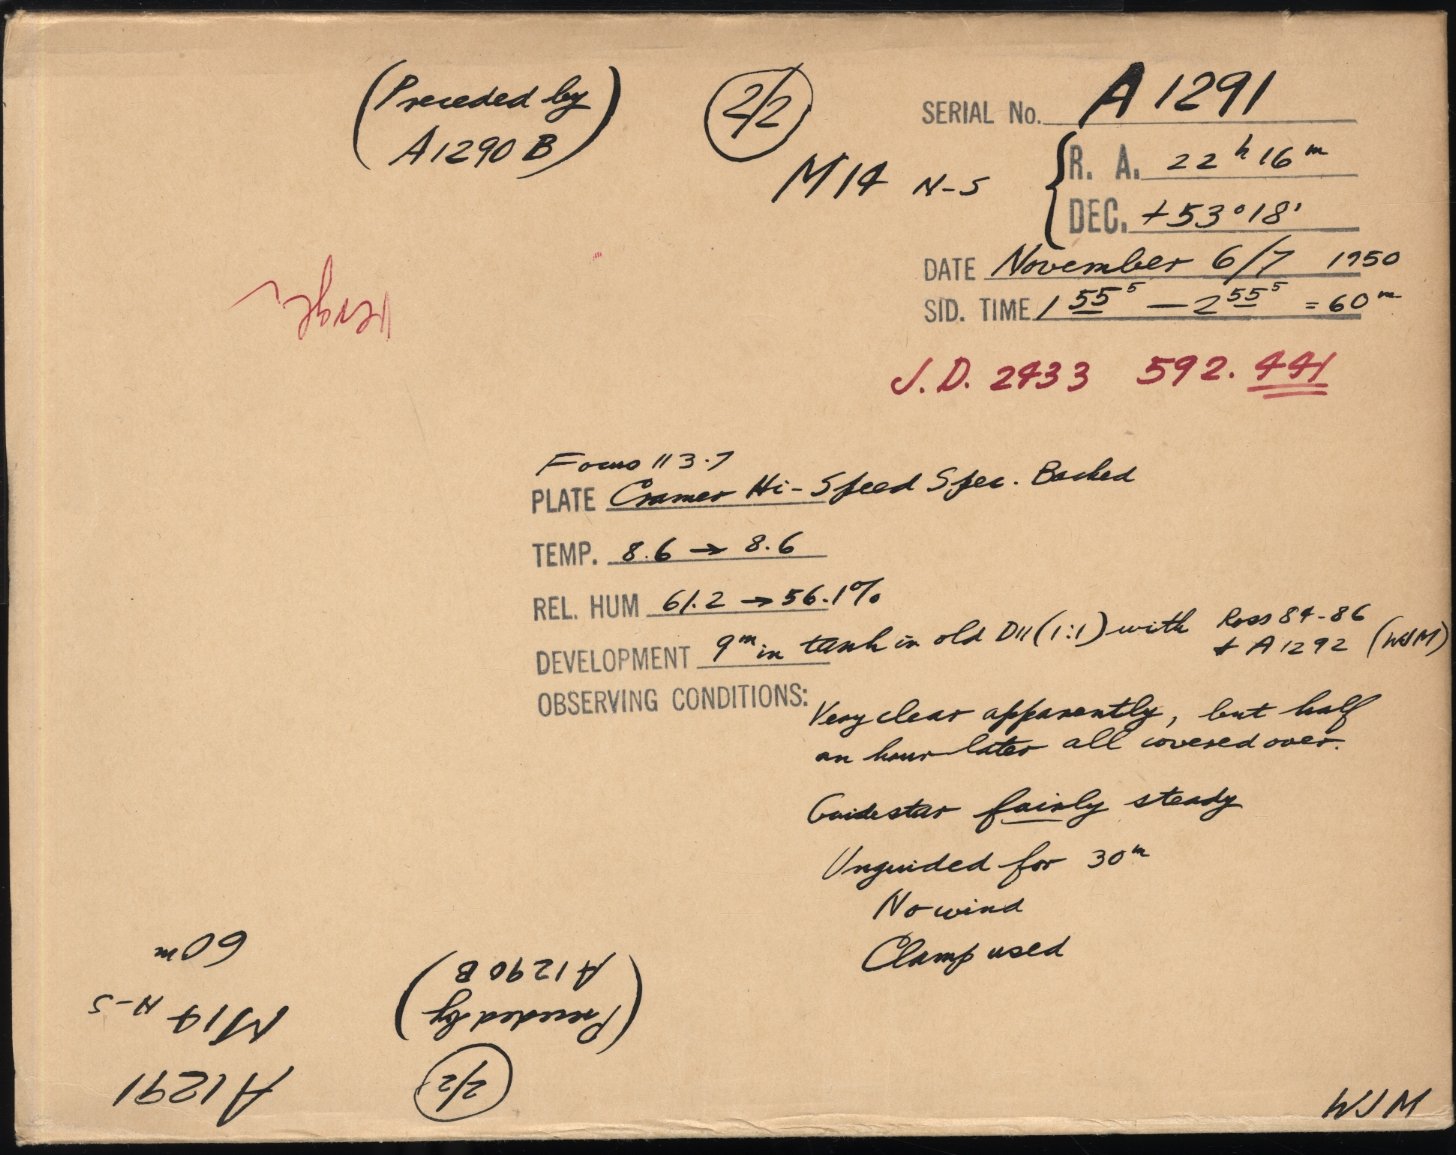 (Preceded by
A1290 B)
2/2
SERIAL No. A 1291
M14 N-S
R. A. 22 h 16 m
DEC. +53°18'
DATE November 6/7 1950
SID. TIME 1 55 5 — 2 55 5 = 60 m
J.D. 2433 592.441
Focus 113.7
PLATE Cramer Hi-Speed Spec. Backed
TEMP. 8.6 → 8.6
REL. HUM 61.2 → 56.1%
DEVELOPMENT 9 m in tank in old D11 (1:1) with Ross 84-86
+ A1292 (WJM)
OBSERVING CONDITIONS:
Very clear apparently, but half
an hour later all covered over.
Guidestar fairly steady
Unguided for 30 m
No wind
Clamp used
WJM
A1291
M14 N-S
60 m
2/2
(Preceded by
A1290 B)